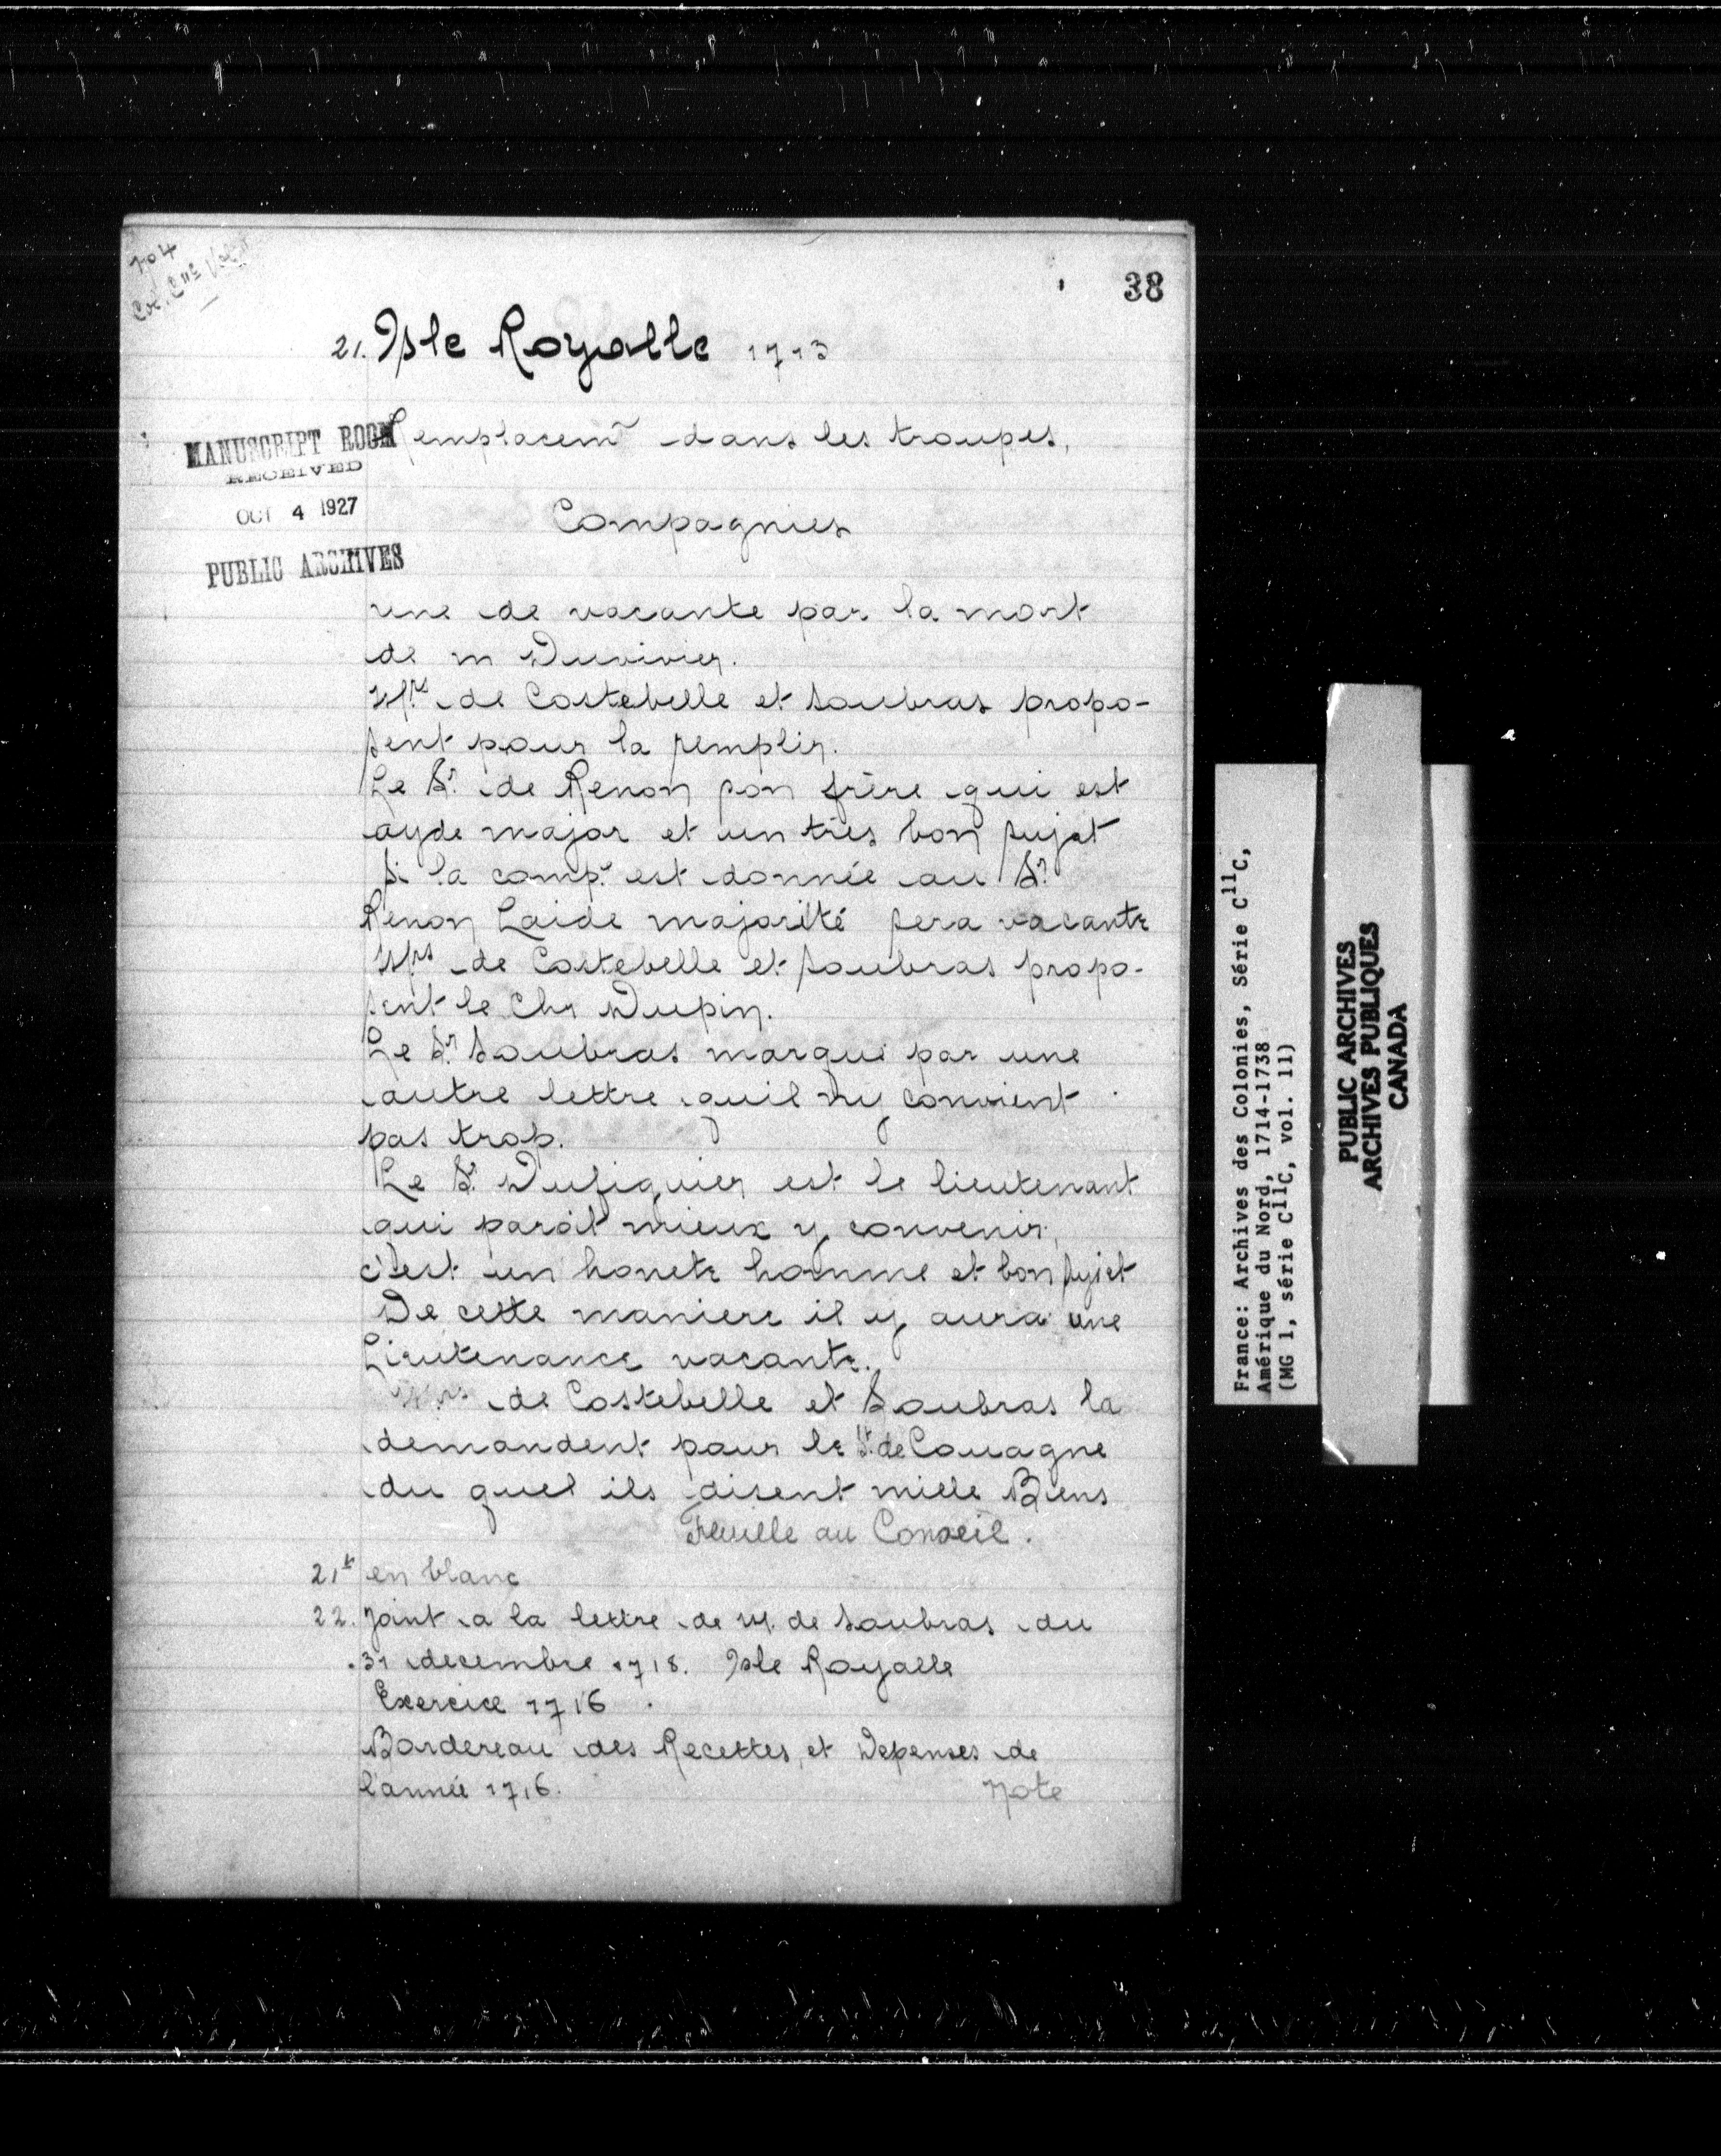 704
38
21. Isle Royalle 1713
MANUSCRIPT ROOM
RECEIVED
OCT 4 1927
PUBLIC ARCHIVES
Remplacemt dans les troupes,
Compagnies
une de vacante par la mort
de m Duvivier.
Mrs de Costebelle et Soubras propo-
sent pour la remplir.
Le Sr. de Renon son frère qui est
ayde major et un très bon sujet
Si la compe est donnée au Sr.
Renon Laide majorité sera vacante
Mrs de Costebelle et Soubras propo-
sent le Chr Dupin.
Le Sr. Soubras marque par une
autre lettre quil ny convient
pas trop.
Le Sr. Dufiguier est le lieutenant
qui paroit mieux y convenir,
c'est un honete homme et bon sujet
De cette maniere il y aura une
Lieutenance vacante.
Mrs de Costebelle et Soubras la
demandent pour le Sr. de Couagne
du quel ils disent mille Biens
Feuille au Conseil.
21v en blanc
22. Joint a la lettre de M. de Soubras du
31 decembre 1718. Isle Royalle
Exercice 1716
Bordereau des Recettes et Depenses de
l'année 1716. Note
France: Archives des Colonies, Série C11C,
Amérique du Nord, 1714-1738
(MG 1, série C11C, vol. 11)
PUBLIC ARCHIVES
ARCHIVES PUBLIQUES
CANADA